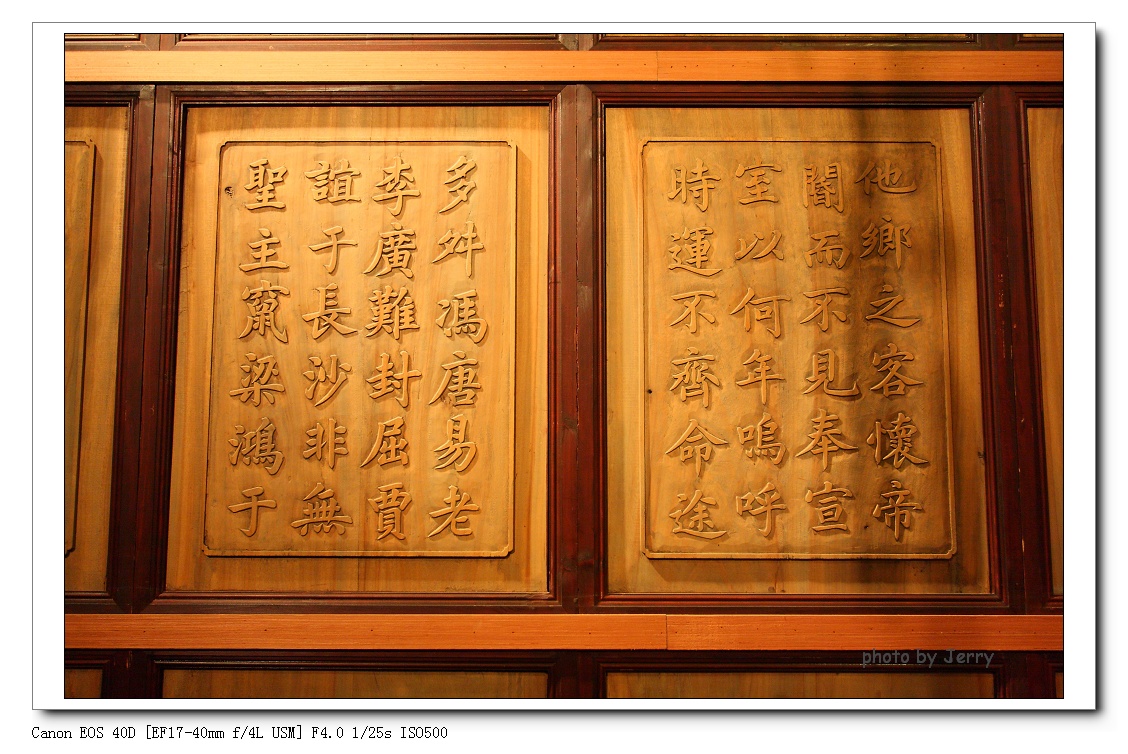 他鄉之客懷帝
閽而不見奉宣
室以何年嗚呼
時運不齊命途
多舛馮唐易老
李廣難封屈賈
誼于長沙非無
聖主竄梁鴻于
photo by Jerry
Canon EOS 40D [EF17-40mm f/4L USM] F4.0 1/25s ISO500